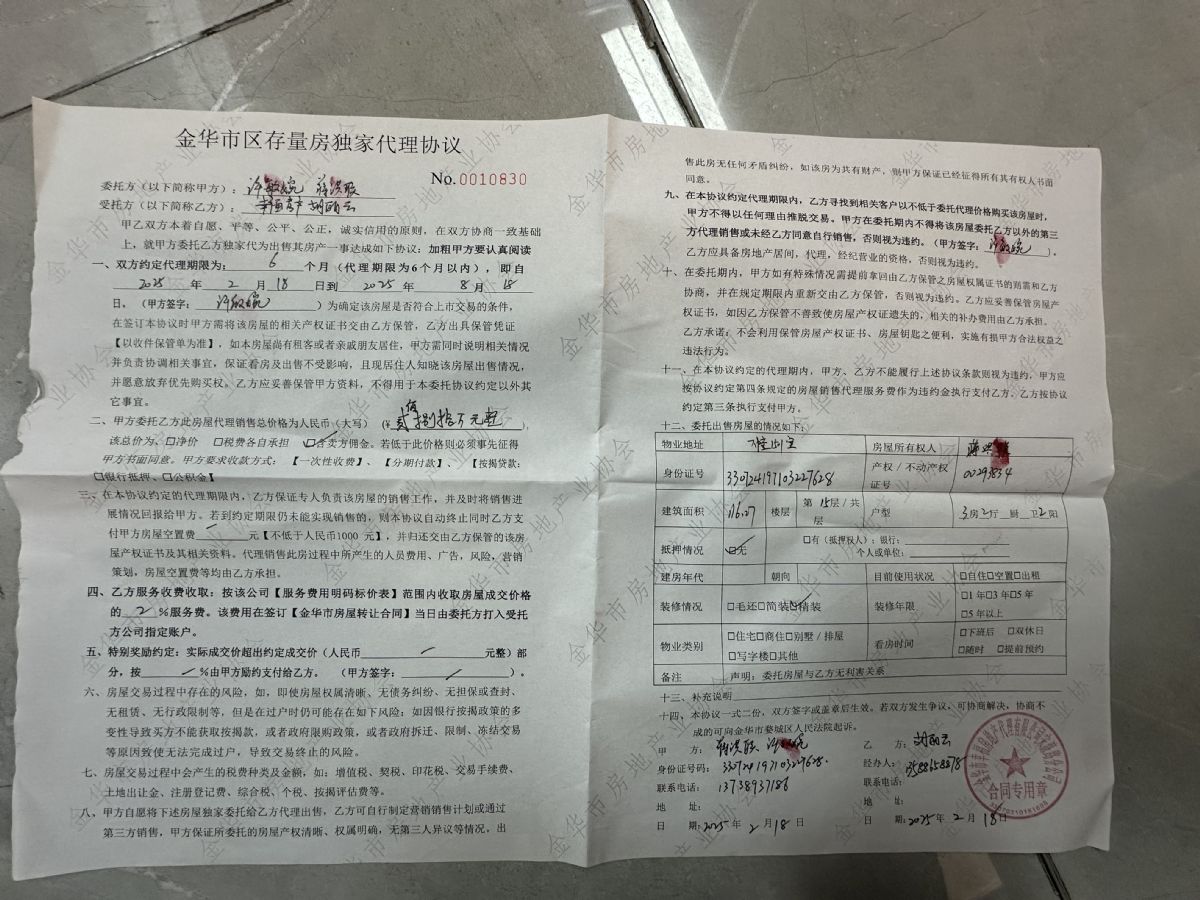 金华市区存量房独家代理协议
No.0010830
委托方（以下简称甲方）：许敏婉 蒋洪
受托方（以下简称乙方）：胡丽云
甲乙双方本着自愿、平等、公平、公正，诚实信用的原则，在双方协商一致基础
上，就甲方委托乙方独家代为出售其房产一事达成如下协议：加粗甲方要认真阅读
一、双方约定代理期限为：6个月（代理期限为6个月以内），即自
2025年2月18日到2025年8月18
日。（甲方签字：许敏婉）为确定该房屋是否符合上市交易的条件，
在签订本协议时甲方需将该房屋的相关产权证书交由乙方保管，乙方出具保管凭证
【以收件保管单为准】，如本房屋尚有租客或者亲戚朋友居住，甲方需同时说明相关情况
并负责协调相关事宜，保证看房及出售不受影响，且现居住人知晓该房屋出售情况，
并愿意放弃优先购买权。乙方应妥善保管甲方资料，不得用于本委托协议约定以外其
它事宜。
二、甲方委托乙方此房屋代理销售总价格为人民币（大写）（¥贰佰捌拾万元整），
该总价为、□净价 □税费各自承担 ☑含卖方佣金。若低于此价格则必须事先征得
甲方书面同意。甲方要求收款方式：【一次性收费】、【分期付款】、【按揭贷款：
□银行抵押、□公积金】
三、在本协议约定的代理期限内，乙方保证专人负责该房屋的销售工作，并及时将销售进
展情况回报给甲方。若到约定期限仍未能实现销售的，则本协议自动终止同时乙方支
付甲方房屋空置费 / 元【不低于人民币1000 元】，并归还交由乙方保管的该房
屋产权证书及其相关资料。代理销售此房过程中所产生的人员费用、广告，风险，营销
策划，房屋空置费等均由乙方承担。
四、乙方服务收费收取：按该公司【服务费用明码标价表】范围内收取房屋成交价格
的 2 %服务费。该费用在签订【金华市房屋转让合同】当日由委托方打入受托
方公司指定账户。
五、特别奖励约定：实际成交价超出约定成交价（人民币 / 元整）部
分，按 / %由甲方励约支付给乙方。（甲方签字： / ）。
六、房屋交易过程中存在的风险，如，即使房屋权属清晰、无债务纠纷、无担保或查封、
无租赁、无行政限制等，但是在过户时仍可能存在如下风险：如因银行按揭政策的多
变性导致买方不能获取按揭款，或者政府限购政策，或者政府拆迁、限制、冻结交易
等原因致使无法完成过户，导致交易终止的风险。
七、房屋交易过程中会产生的税费种类及金额，如：增值税、契税、印花税、交易手续费、
土地出让金、注册登记费、综合税、个税、按揭评估费等。
八、甲方自愿将下述房屋独家委托给乙方代理出售，乙方可自行制定营销销售计划或通过
第三方销售，甲方保证所委托的房屋产权清晰、权属明确，无第三人异议等情况，出
售此房无任何矛盾纠纷，如该房为共有财产，则甲方保证已经征得所有其有权人书面
同意。
九、在本协议约定代理期限内，乙方寻找到相关客户以不低于委托代理价格购买该房屋时，
甲方不得以任何理由推脱交易。甲方在委托期内不得将该房屋委托乙方以外的第三
方代理销售或未经乙方同意自行销售，否则视为违约。（甲方签字：许敏婉），
乙方应具备房地产居间，代理，经纪营业的资格，否则视为违约。
十、在委托期内，甲方如有特殊情况需提前拿回由乙方保管之房屋权属证书的则需和乙方
协商，并在规定期限内重新交由乙方保管，否则视为违约。乙方应妥善保管房屋产
权证书，如因乙方保管不善致使房屋产权证遗失的，相关的补办费用由乙方承担。
乙方承诺：不会利用保管房屋产权证书、房屋钥匙之便利，实施有损甲方合法权益之
违法行为。
十一、在本协议约定的代理期内，甲方、乙方不能履行上述协议条款则视为违约，甲方应
按协议约定第四条规定的房屋销售代理服务费作为违约金执行支付乙方。乙方按协议
约定第三条执行支付甲方。
十二、委托出售房屋的情况如下：
物业地址 房屋所有权人 蒋洪
身份证号 330724197103227628 产权／不动产权证号 00293834
建筑面积 116.27 楼层 第15层/共 层 户型 3房2厅 厨 卫2阳
抵押情况 ☑无 □有（抵押权人）；银行： 个人或单位：
建房年代 朝向 目前使用状况 □自住□空置□出租
装修情况 □毛还□简装☑精装 装修年限 □1年□3年□5年 □5年以上
物业类别 □住宅□商住□别墅／排屋 □写字楼□其他 看房时间 □下班后 □双休日 □随时 □提前预约
备注 声明：委托房屋与乙方无利害关系
十三、补充说明
十四、本协议一式二份，双方签字或盖章后生效。若双方发生争议，可协商解决，协商不
成的可向金华市婺城区人民法院起诉。
甲 方：蒋洪 许敏婉 乙 方：胡丽云
身份证号码：330724197103227628. 经办人：13588658878
联系电话：13738937186 联系电话：
地 址： 地 址：
日 期：2025年2月18日 日 期：2025年2月18日
合同专用章